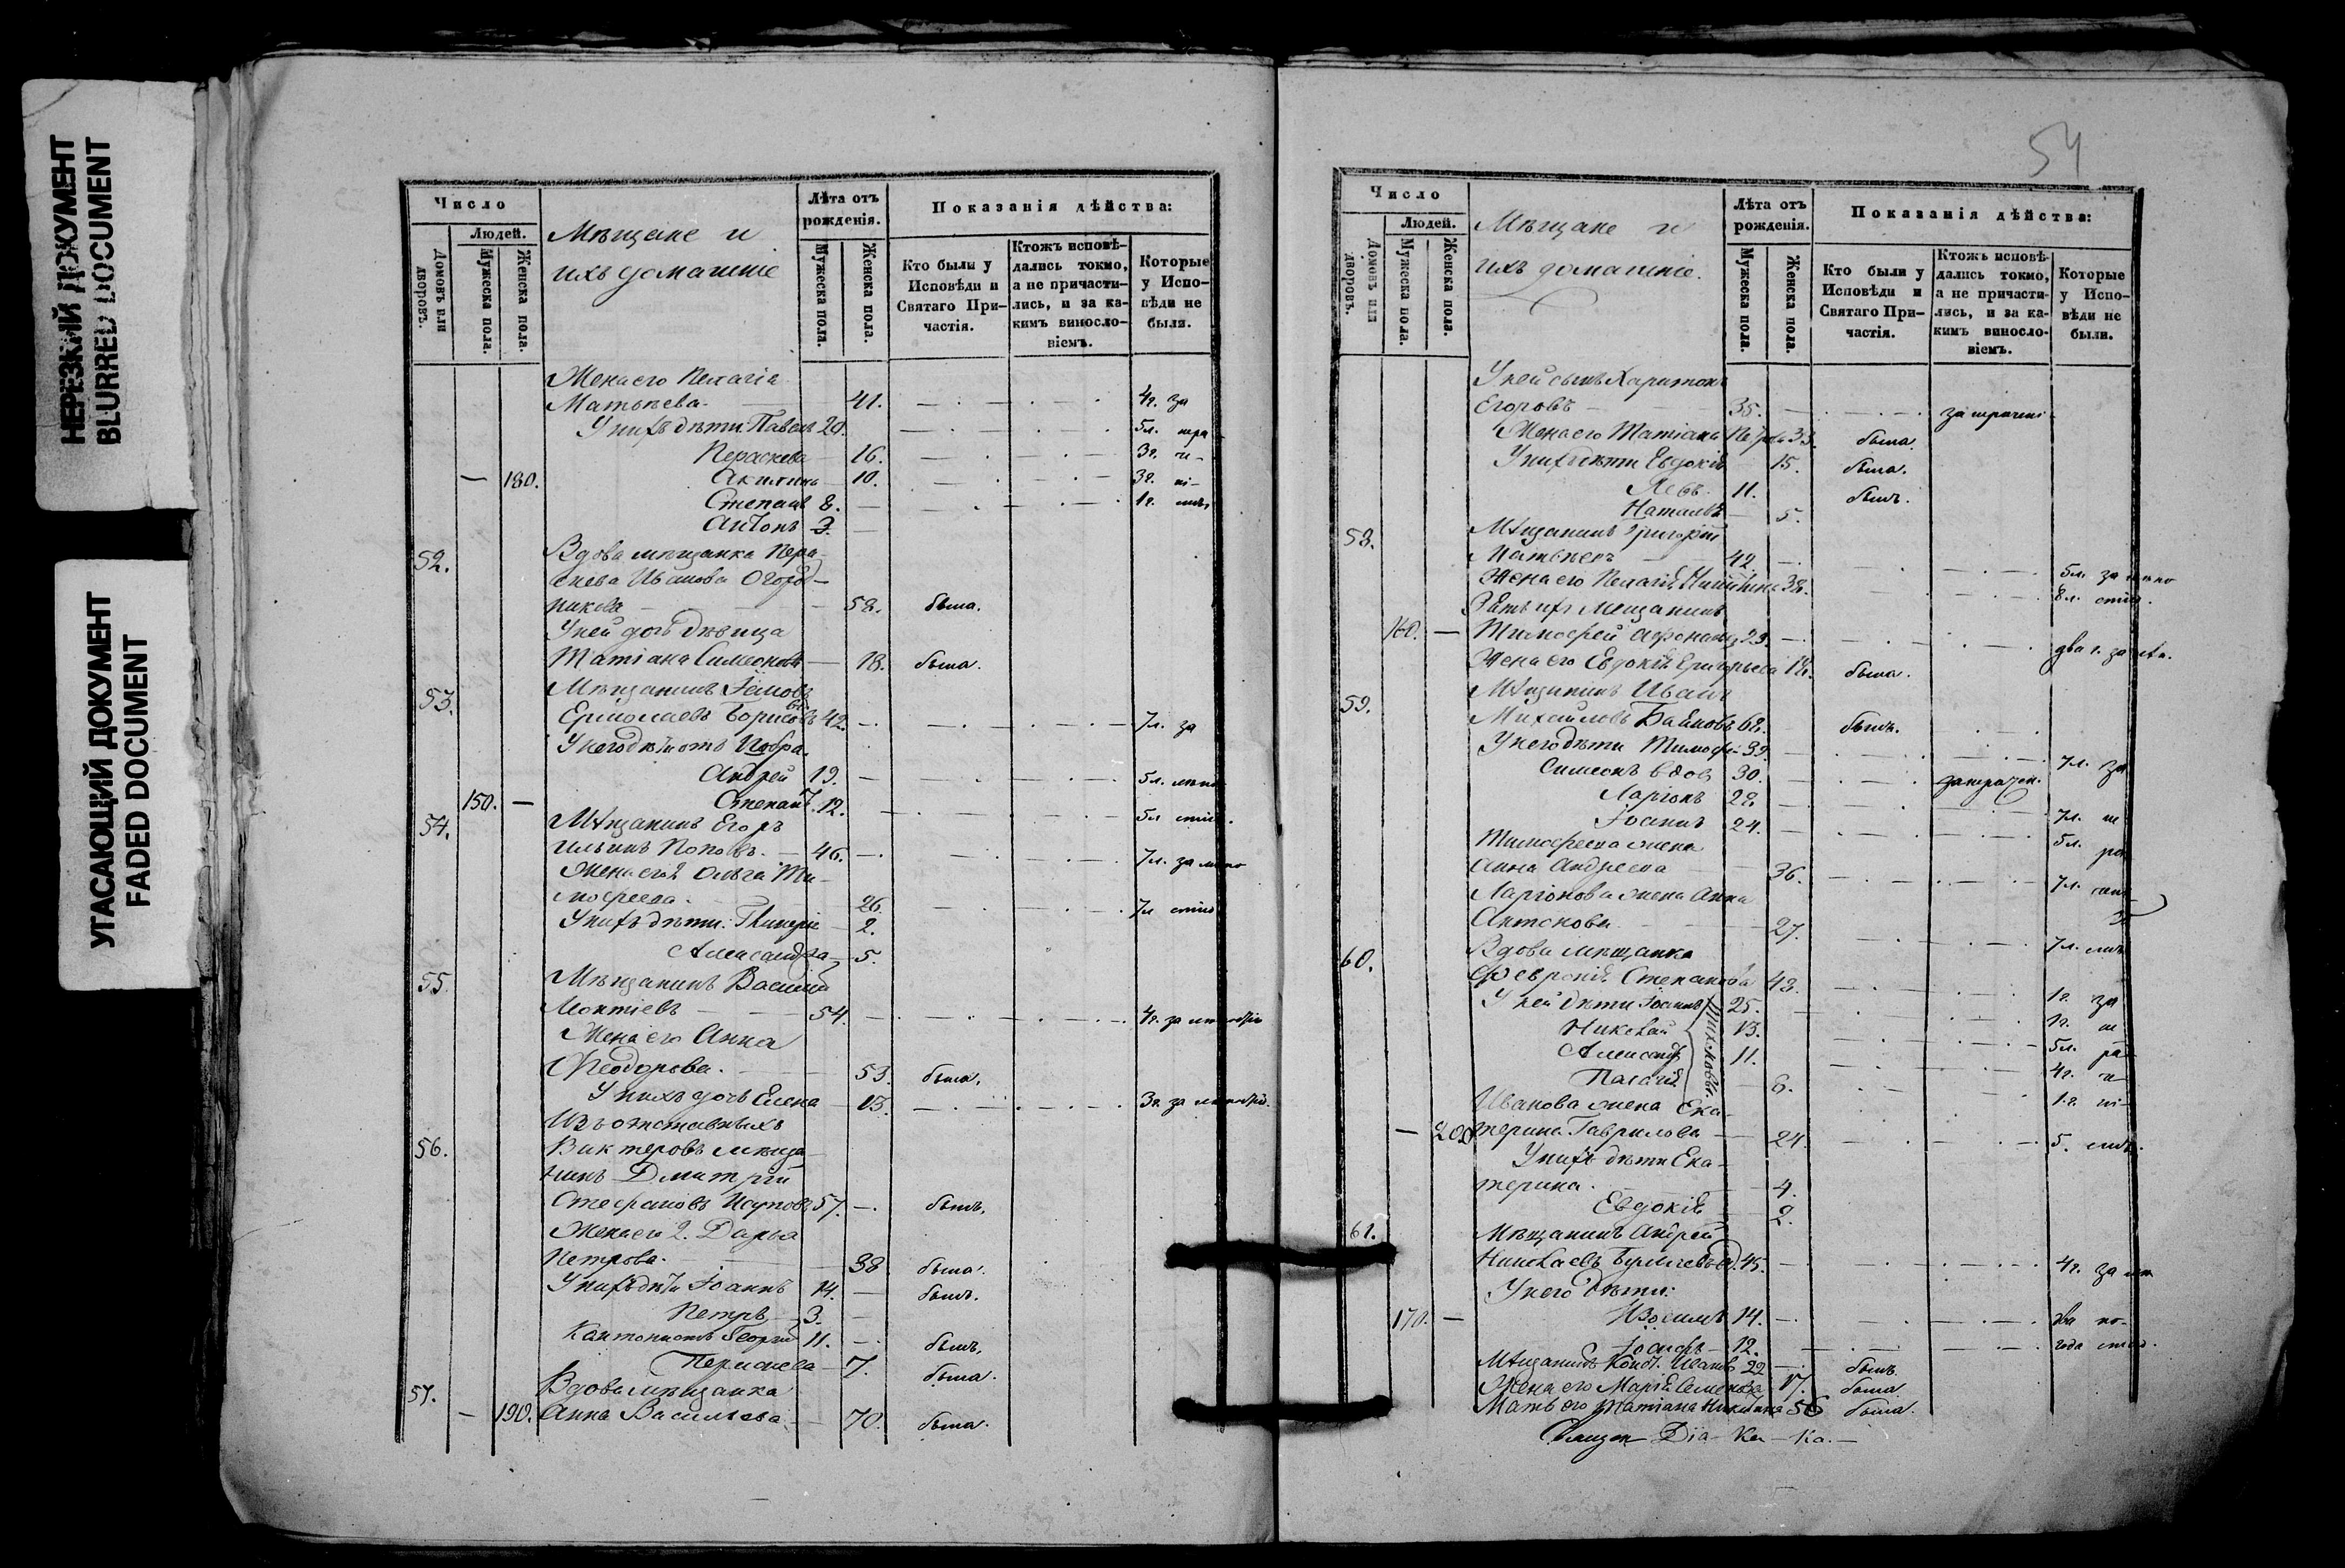 НЕРЕЗКИЙ ДОКУМЕНТ
BLURRED DOCUMENT
УГАСАЮЩИЙ ДОКУМЕНТ
FADED DOCUMENT
Число
Людей.
Домовъ или дворовъ.
Мужеска пола.
Женска пола.
Мѣщане и
ихъ домашніе
Лѣта отъ рожденія.
Мужеска пола.
Женска пола.
Показанія дѣйства:
Кто были у Исповѣди и Святаго Причастія.
Ктожъ исповѣдались токмо, а не причастились, и за какимъ винословіемъ.
Которые у Исповѣди не были.
Жена его Пелагіа
Матвѣева 41. 4г. за
У нихъ дѣти: Павелъ 20. 5л. нера
Пераскева 16. 3г. че-
— 180. Акилина 10. 3г. ні-
Степанъ 8. 1г. емъ
Антонъ 3.
52. Вдова мѣщанка Пера-
скева Иванова Огород-
никова 58. была.
У ней дочь дѣвица
Татіана Симеонова 18. была.
53. Мѣщанинъ Іаковъ
Ермолаевъ Борисовъ вд. 42. 7л. за
У него дѣти отъ 1го бра.
Андрей 19. 5л.
150. — Степанъ 12. 5л
54. Мѣщанинъ Егоръ
Ильинъ Поповъ. 46. 7л. за
Жена его 2 Ольга Ти-
мофеева. 26. 7л
У нихъ дѣти: Гликерія 2.
Александра 5.
55. Мѣщанинъ Василій
Леонтіевъ 54. 4г. за
Жена его Анна
Феодорова. 53. была.
У нихъ дочь Елена 13. 3г. за
Изъ отставныхъ
56. Вахтеровъ мѣща-
нинъ Дмитрій
Стефановъ 57. былъ.
Жена его 2. Дарья
Петрова. 38. была.
У нихъ дѣти Іоаннъ 14. былъ.
Петръ 3.
Кантонистъ Георгій 11. былъ.
Пераскева 7. была.
57. Вдова мѣщанка
— 190. Анна Васильева 70. была.
54
Число
Людей.
Домовъ или дворовъ.
Мужеска пола.
Женска пола.
Мѣщане и
ихъ домашніе.
Лѣта отъ рожденія.
Мужеска пола.
Женска пола.
Показанія дѣйства:
Кто были у Исповѣди и Святаго Причастія.
Ктожъ исповѣдались токмо, а не причастились, и за какимъ винословіемъ.
Которые у Исповѣди не были.
У ней сынъ Харитонъ
Егоровъ 35.
Жена его Татіана Петрова 33. была.
У нихъ дѣти Евдокія 15. была.
Левъ 11. былъ.
Наталья 5.
58. Мѣщанинъ Григорій
Матвѣевъ 42. 5л. за
Жена его Пелагія Никитина 38. 8л.
Зять ихъ Мещанинъ
160. — Тимофей Афонасьевъ 23. два г. за
Жена его Евдокія Григорьева 18. была.
59. Мѣщанинъ Иванъ
Михайловъ 62. былъ.
У него дѣти Тимофей 39. 7л. за
Симеонъ вдовъ 30.
Ларіонъ 28. 7л. не
Іоаннъ 24. 5л. ра
Тимофеева жена
Анна Андреева 36. 7л.
Ларіонова жена Анна
Антонова 27. 7л. емъ
60. Вдова мѣщанка
Февронія Степанова 48. 1г. за
У ней дѣти Іоаннъ 25. 1г. не
Николай 13. 5л. ра
Александръ 11. 4г. че
Палагія 6. 1г. ні-
Иванова жена Ека-
— 200 терина Гаврилова 24. 5. емъ.
У нихъ дѣти Ека-
терина. 4.
Евдокія 2.
61. Мѣщанинъ Андрей
Николаевъ вд. 45. 4г. за
У него дѣти:
170. — 14. два не-
Іосифъ 12. года
Мѣщанинъ Конст. Ивановъ 22 былъ.
Жена его Марія Семенова 17. была
Мать его Татіана Никитина 56 была.
Діа-ко-на.